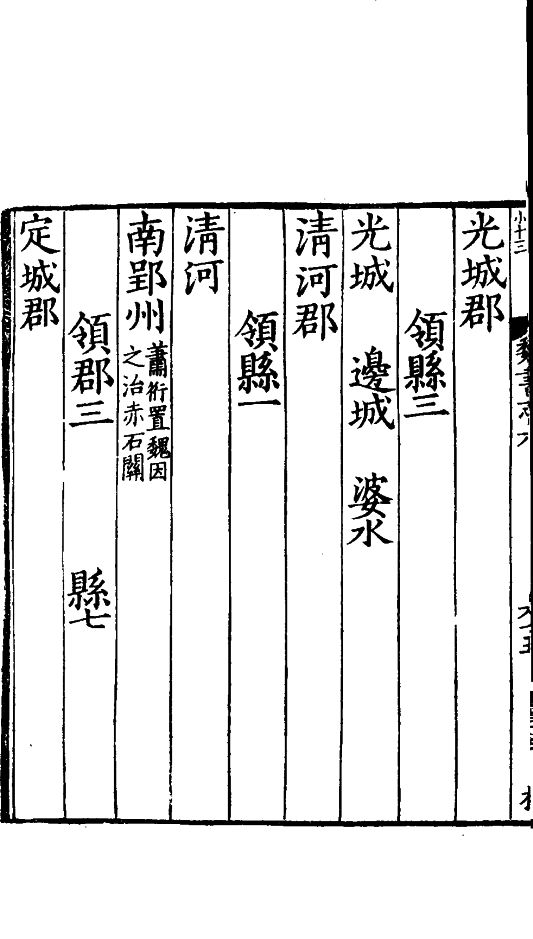 小十三
魏書志六
光城郡
領縣三
光城　邊城　婆水
清河郡
領縣一
清河
南郢州蕭衍置魏因之治赤石關
領郡三　縣七
定城郡